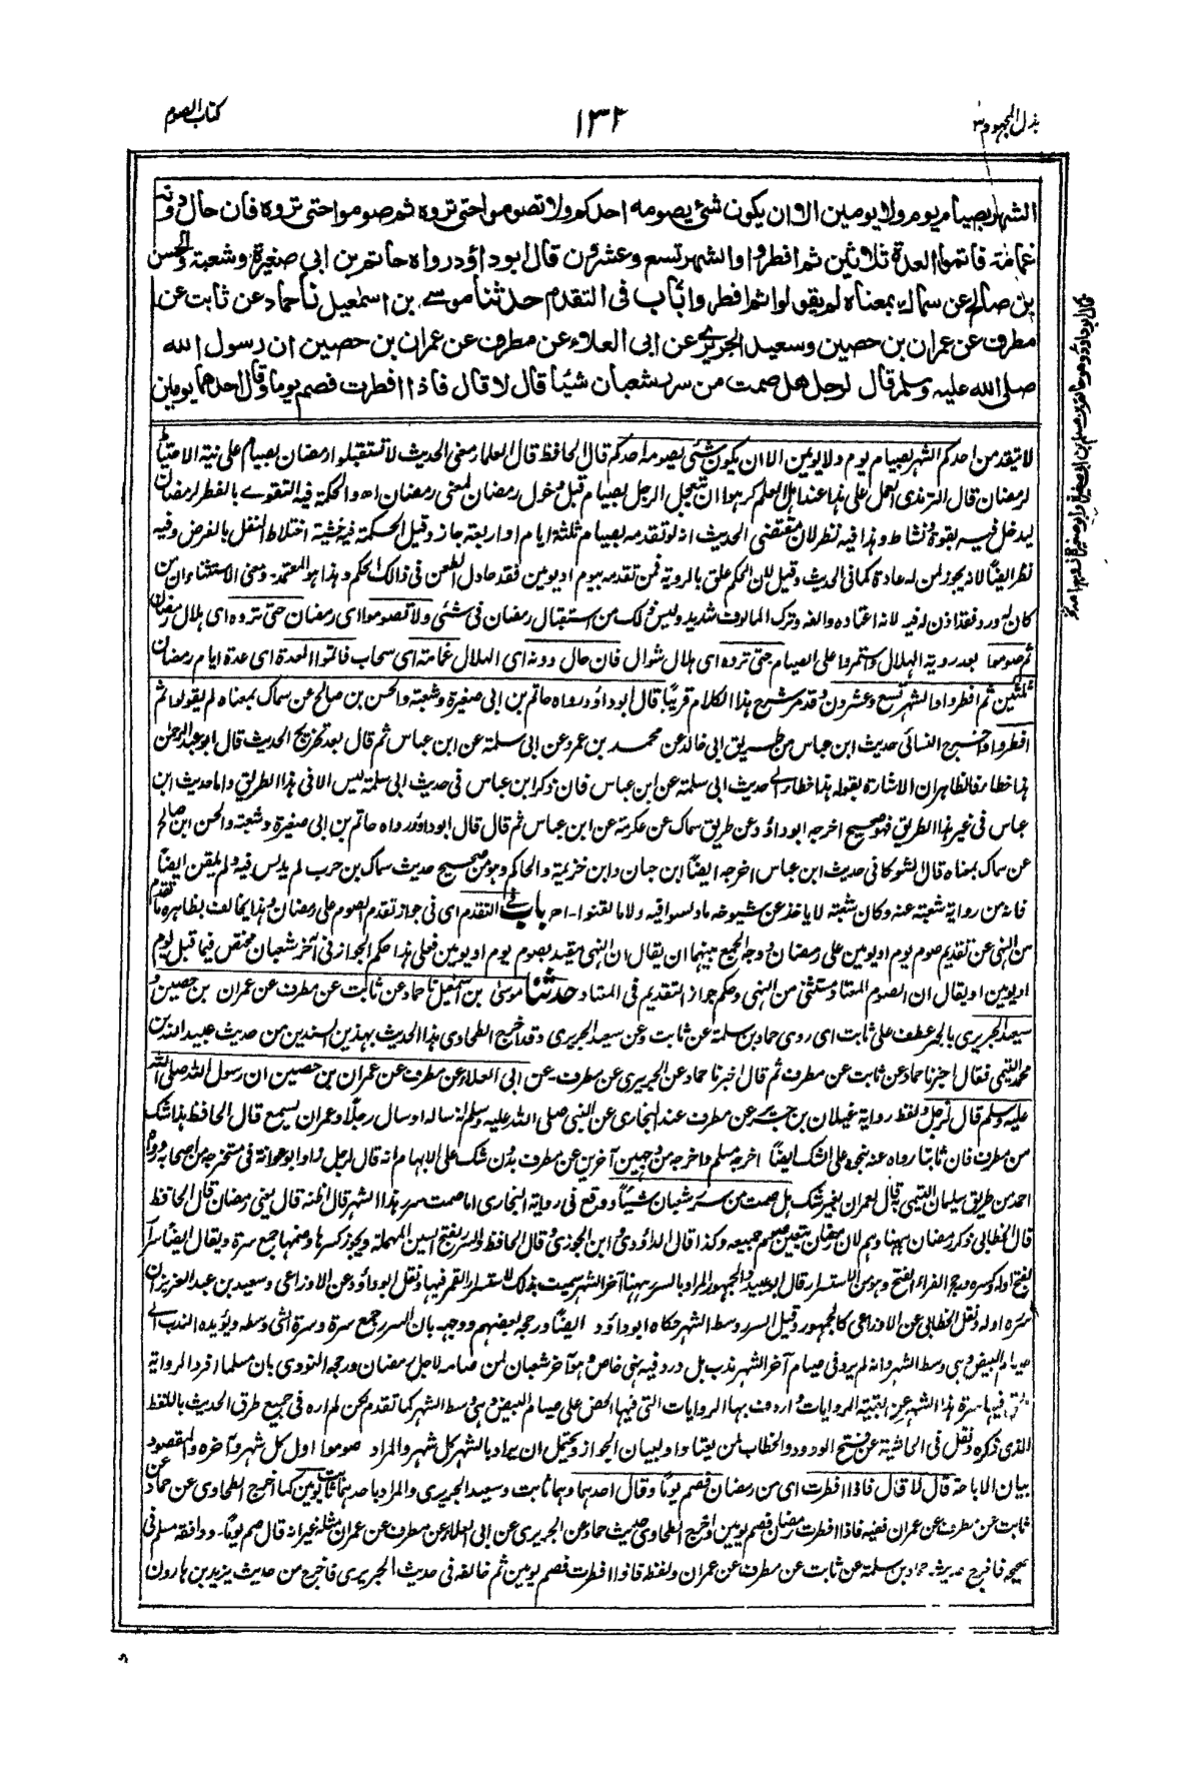 بذل المجهود ٣
١٣٢
كتاب الصوم
الشهر بصيام يوم ولا يومين الا ان يكون شئ يصومه احدكم ولا تصوموا حتى تروه ثم صوموا حتى تروه فان حال دونه
غمامة فاتموا العدة ثلاثين ثم افطروا والشهر تسع وعشرون قال ابو داؤد رواه حاتم بن ابى صغيرة وشعبة والحسن
بن صالح عن سماك بمعناه لم يقولوا ثم افطروا باب فى التقدم حدثنا موسى بن اسمعيل نا حماد عن ثابت عن
مطرف عن عمران بن حصين وسعيد الجريرى عن ابى العلاء عن مطرف عن عمران بن حصين ان رسول الله
صلى الله عليه وسلم قال لرجل هل صمت من سرر شعبان شيئا قال لا قال فاذا افطرت فصم يوما وقال احدهما يومين
لا يتقدمن احدكم الشهر بصيام يوم ولا يومين الا ان يكون شئى يصومه احدكم قال الحافظ قال العلماء معنى الحديث لا تستقبلوا رمضان بصيام على نية الاحتياط
لرمضان قال الترمذى العمل على هذا عند اهل العلم كرهوا ان يتعجل الرجل بصيام قبل دخول رمضان لمعنى رمضان اه والحكمة فيه التقوى بالفطر لرمضان
ليدخل فيه بقوة ونشاط وهذا فيه نظر لان مقتضى الحديث انه لو تقدمه بصيام ثلثة ايام او اربعة جاز وقيل الحكمة فيه خشية اختلاط النفل بالفرض وفيه
نظر ايضا لانه يجوز لمن له عادة كما فى الحديث وقيل لان الحكم علق بالروية فمن تقدمه بيوم او يومين فقد حاول الطعن فى ذلك الحكم وهذا هو المعتمد ومعنى الاستثناء ان من
كان له ورد فقد اذن له فيه لانه اعتاده والفه وترك المالوف شديد وليس ذلك من استقبال رمضان فى شئى ولا تصوموا اى رمضان حتى تروه اى هلال رمضان
ثم صوموا بعد روية الهلال واستمروا على الصيام حتى تروه اى هلال شوال فان حال دونه اى الهلال غمامة اى سحاب فاتموا العدة اى عدة ايام رمضان
ثلثين ثم افطروا والشهر تسع وعشرون وقد مر شرح هذا الكلام قريبا قال ابو داؤد رواه حاتم بن ابى صغيرة وشعبة والحسن بن صالح عن سماك بمعناه لم يقولوا ثم
افطروا واخرج النسائى حديث ابن عباس من طريق ابى خالد عن محمد بن عمرو عن ابى سلمة عن ابن عباس ثم قال بعد تخريج الحديث قال ابو عبد الرحمن
هذا خطا فالظاهر ان الاشارة بقوله هذا خطا الى حديث ابى سلمة عن ابن عباس فان ذكر ابن عباس فى حديث ابى سلمة ليس الا فى هذا الطريق واما حديث ابن
عباس فى غير هذا الطريق فهو صحيح اخرجه ابو داؤد عن طريق سماك عن عكرمة عن ابن عباس ثم قال قال ابو داؤد رواه حاتم بن ابى صغيرة وشعبة والحسن ابن صالح
عن سماك بمعناه قال الشوكانى حديث ابن عباس اخرجه ايضا ابن حبان وابن خزيمة والحاكم وهو من صحيح حديث سماك بن حرب لم يدلس فيه ولم يلقن ايضا
فانه من رواية شعبة عنه وكان شعبة لا ياخذ عن شيوخه ما دلسوا فيه ولا ما لقنوا - اه باب فى التقدم اى فى جواز تقدم الصوم على رمضان وهذا يخالف بظاهره ما تقدم
من النهى عن تقديم صوم يوم او يومين على رمضان ووجه الجمع بينهما ان يقال ان النهى مقيد بصوم يوم او يومين فعلى هذا حكم الجواز فى آخر شعبان مختص فيما قبل يوم
او يومين او يقال ان الصوم المعتاد مستثنى من النهى وحكم جواز التقديم فى المعتاد حدثنا موسى بن اسمعيل نا حماد عن ثابت عن مطرف عن عمران بن حصين و
سعيد الجريرى بالجر عطف على ثابت اى روى حماد بن سلمة عن ثابت وعن سعيد الجريرى وقد اخرج الطحاوى هذا الحديث بهذين السندين من حديث عبيد الله بن
محمد التيمى فقال اخبرنا حماد عن ثابت عن مطرف ثم قال اخبرنا حماد عن الجريرى عن مطرف - عن ابى العلاء عن مطرف عن عمران بن حصين ان رسول الله صلى الله
عليه وسلم قال لرجل ولفظ رواية غيلان بن جرير عن مطرف عند البخارى عن النبى صلى الله عليه وسلم انه ساله او سال رجلا وعمران يسمع قال الحافظ هذا شك
من مطرف فان ثابتا رواه عنه بنحوه على الشك ايضا اخرجه مسلم واخرجه من وجهين آخرين عن مطرف بدون شك على الابهام انه قال لرجل زاد ابو عوانة فى مستخرجه من اصحابه ورواه
احمد من طريق سليمان التيمى به قال لعمران بغير شك هل صمت من سرر شعبان شيئا ووقع فى رواية البخارى اما صمت سرر هذا الشهر قال اظنه قال يعنى رمضان قال الحافظ
قال الخطابى ذكر رمضان هنا وهم لان رمضان يتعين صوم جميعه وكذا قال الداؤدى وابن الجوزى وقال الحافظ والسرر بفتح السين المهملة ويجوز كسرها وضمها جمع سرة ويقال ايضا سرار
بفتح اوله وكسره ورجح الفراء الفتح وهو من الاستسرار قال ابو عبيد والجمهور المراد بالسرر هنا آخر الشهر سميت بذلك لاستسرار القمر فيها ونقل ابو داؤد عن الاوزاعى وسعيد بن عبد العزيز ان
سرره اوله ونقل الخطابى عن الاوزاعى كالجمهور وقيل السرر وسط الشهر حكاه ابو داؤد ايضا ورجحه بعضهم ووجهه بان السرر جمع سرة وسرة الشئى وسطه ويؤيده الندب الى
صيام البيض وهى وسط الشهر وانه لم يرد فى صيام آخر الشهر ندب بل ورد فيه نهى خاص وهو آخر شعبان لمن صامه لاجل رمضان ورجحه النووى بان مسلما افرد الرواية
التى فيها سرة هذا الشهر عن بقية الروايات واردف بها الروايات التى فيها الحض على صيام البيض وهى وسط الشهر كما تقدم لكن لم اره فى جميع طرق الحديث باللفظ
الذى ذكره ونقل فى الحاشية عن فتح الودود والخطاب لمن يعتاد او لبيان الجواز ويحتمل ان يراد بالشهر كل شهر والمراد صوموا اول كل شهر وآخره والمقصود
بيان الاباحة قال لا قال فاذا افطرت اى من رمضان فصم يوما وقال احدهما وهما ثابت وسعيد الجريرى والمراد باحدهما ثابت يومين كما اخرج الطحاوى عن حماد عن
ثابت عن مطرف عن عمران ففيه فاذا افطرت رمضان فصم يومين واخرج الطحاوى حديث حماد عن الجريرى عن ابى العلاء عن مطرف عن عمران مثله غير انه قال صم يوما - ووافقه مسلم فى
صحيحه فاخرج حديث حماد بن سلمة عن ثابت عن مطرف عن عمران ولفظه فاذا افطرت فصم يومين ثم خالفه فى حديث الجريرى فاخرج من حديث يزيد بن هارون